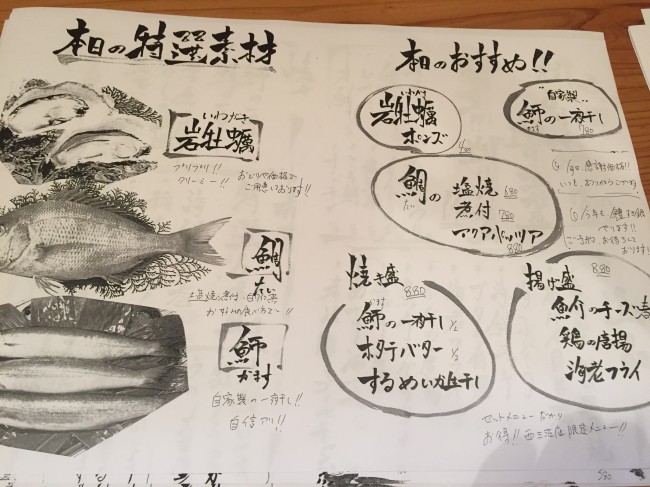 本日の特選素材
いわがき
岩牡蠣
プリプリ!!
クリーミー!!
おどろや価格で
ご用意いております!!
鯛
たい
塩焼き・煮付・自分好み
お好みの食べ方で…!!
魳
かます
自家製の一夜干し!!
自信アリ!!
本日のおすすめ!!
いわがき
岩牡蠣
ポンズ
480
"自家製"
魳の一夜干し
かます
780
鯛の
たい
塩焼 680
煮付 780
アクアパッツァ
880
焼き盛
880
かます
魳の一夜干し 1/2
ホタテバター 1/2
するめいか丸干し
揚げ盛
880
魚介のチーズ春
鶏の唐揚
海老フライ
セットメニューなかり
お得!!西三荘店限定メニュー!!
580